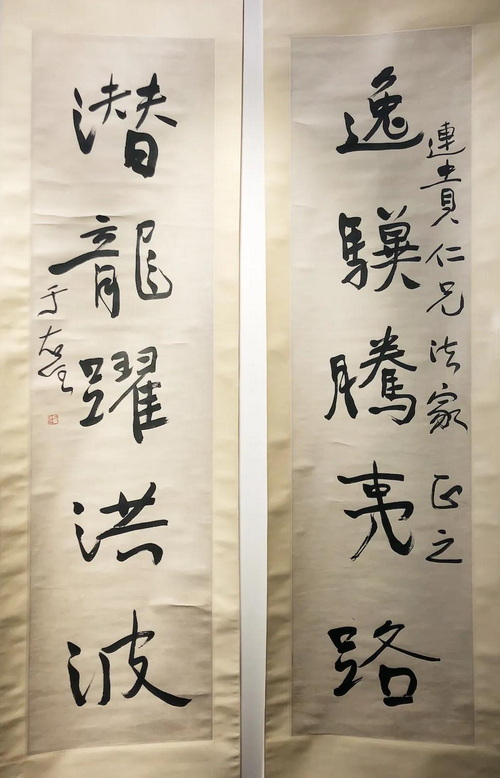 連貴仁兄法家正之
逸驥騰夷路
潜龍躍洪波
于右任